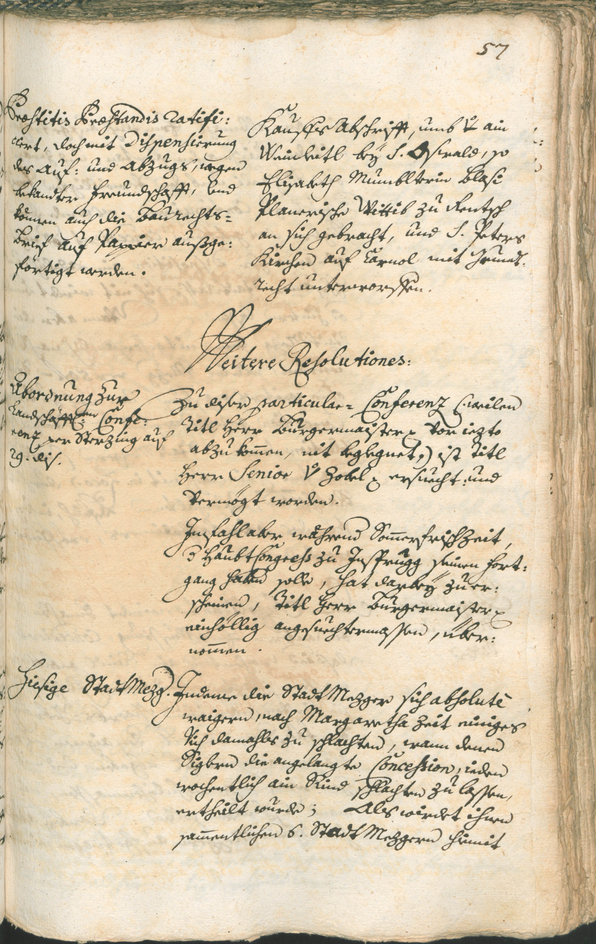 57
Præstitis Præstandis ratifi:
cirt, doch mit Dispensierung
des Auf: und Abzugs, wegen
bekandter freundschafft, und
können auch die Baurechts=
brief auf Papier außge:
fertigt werden.
Kauffs Abschrifft, umb ain
Weinheitl bey S. Oswald, so
Elisabeth Blasi
Planerische Wittib zu Rentsch
an sich gebracht, und S. Peters
Kirchen auf Carnol mit Grund:
recht unterworffen.
Weitere Resolutiones:
Abordnung zur
Landschafftl. Confe:
renz per Sterzing auf
29. dis.
Zu diser particular= Conferenz (:weilen
Titl Herr Burgermaister vor iezto
abzukommen, nit begegnet,:) ist Titl
Herr Senior V. Zobel ersuecht und
vermögt worden.
Im fahl aber während Sommerfrisch Zeit,
d Haubt Congress zu Insprugg seinen fort:
gang haben solle, hat darbey zu er:
scheinen, Titl Herr Burgermaister
einhöllig angesuechtermassen, über:
nommen.
Hiesige Stadt Mezg.
Indeme die Stadt Mezger sich absolutè
waigern, nach Margaretha Zeit einiges
Vich damahls zu schlachten, wann denen
die angelangte Concession, ieden
wochentlich ain Rind schlachten zu lassen,
ertheilt wurde; Als würdet ihnen
sammentlichen 6. Stadt Mezgern hiemit